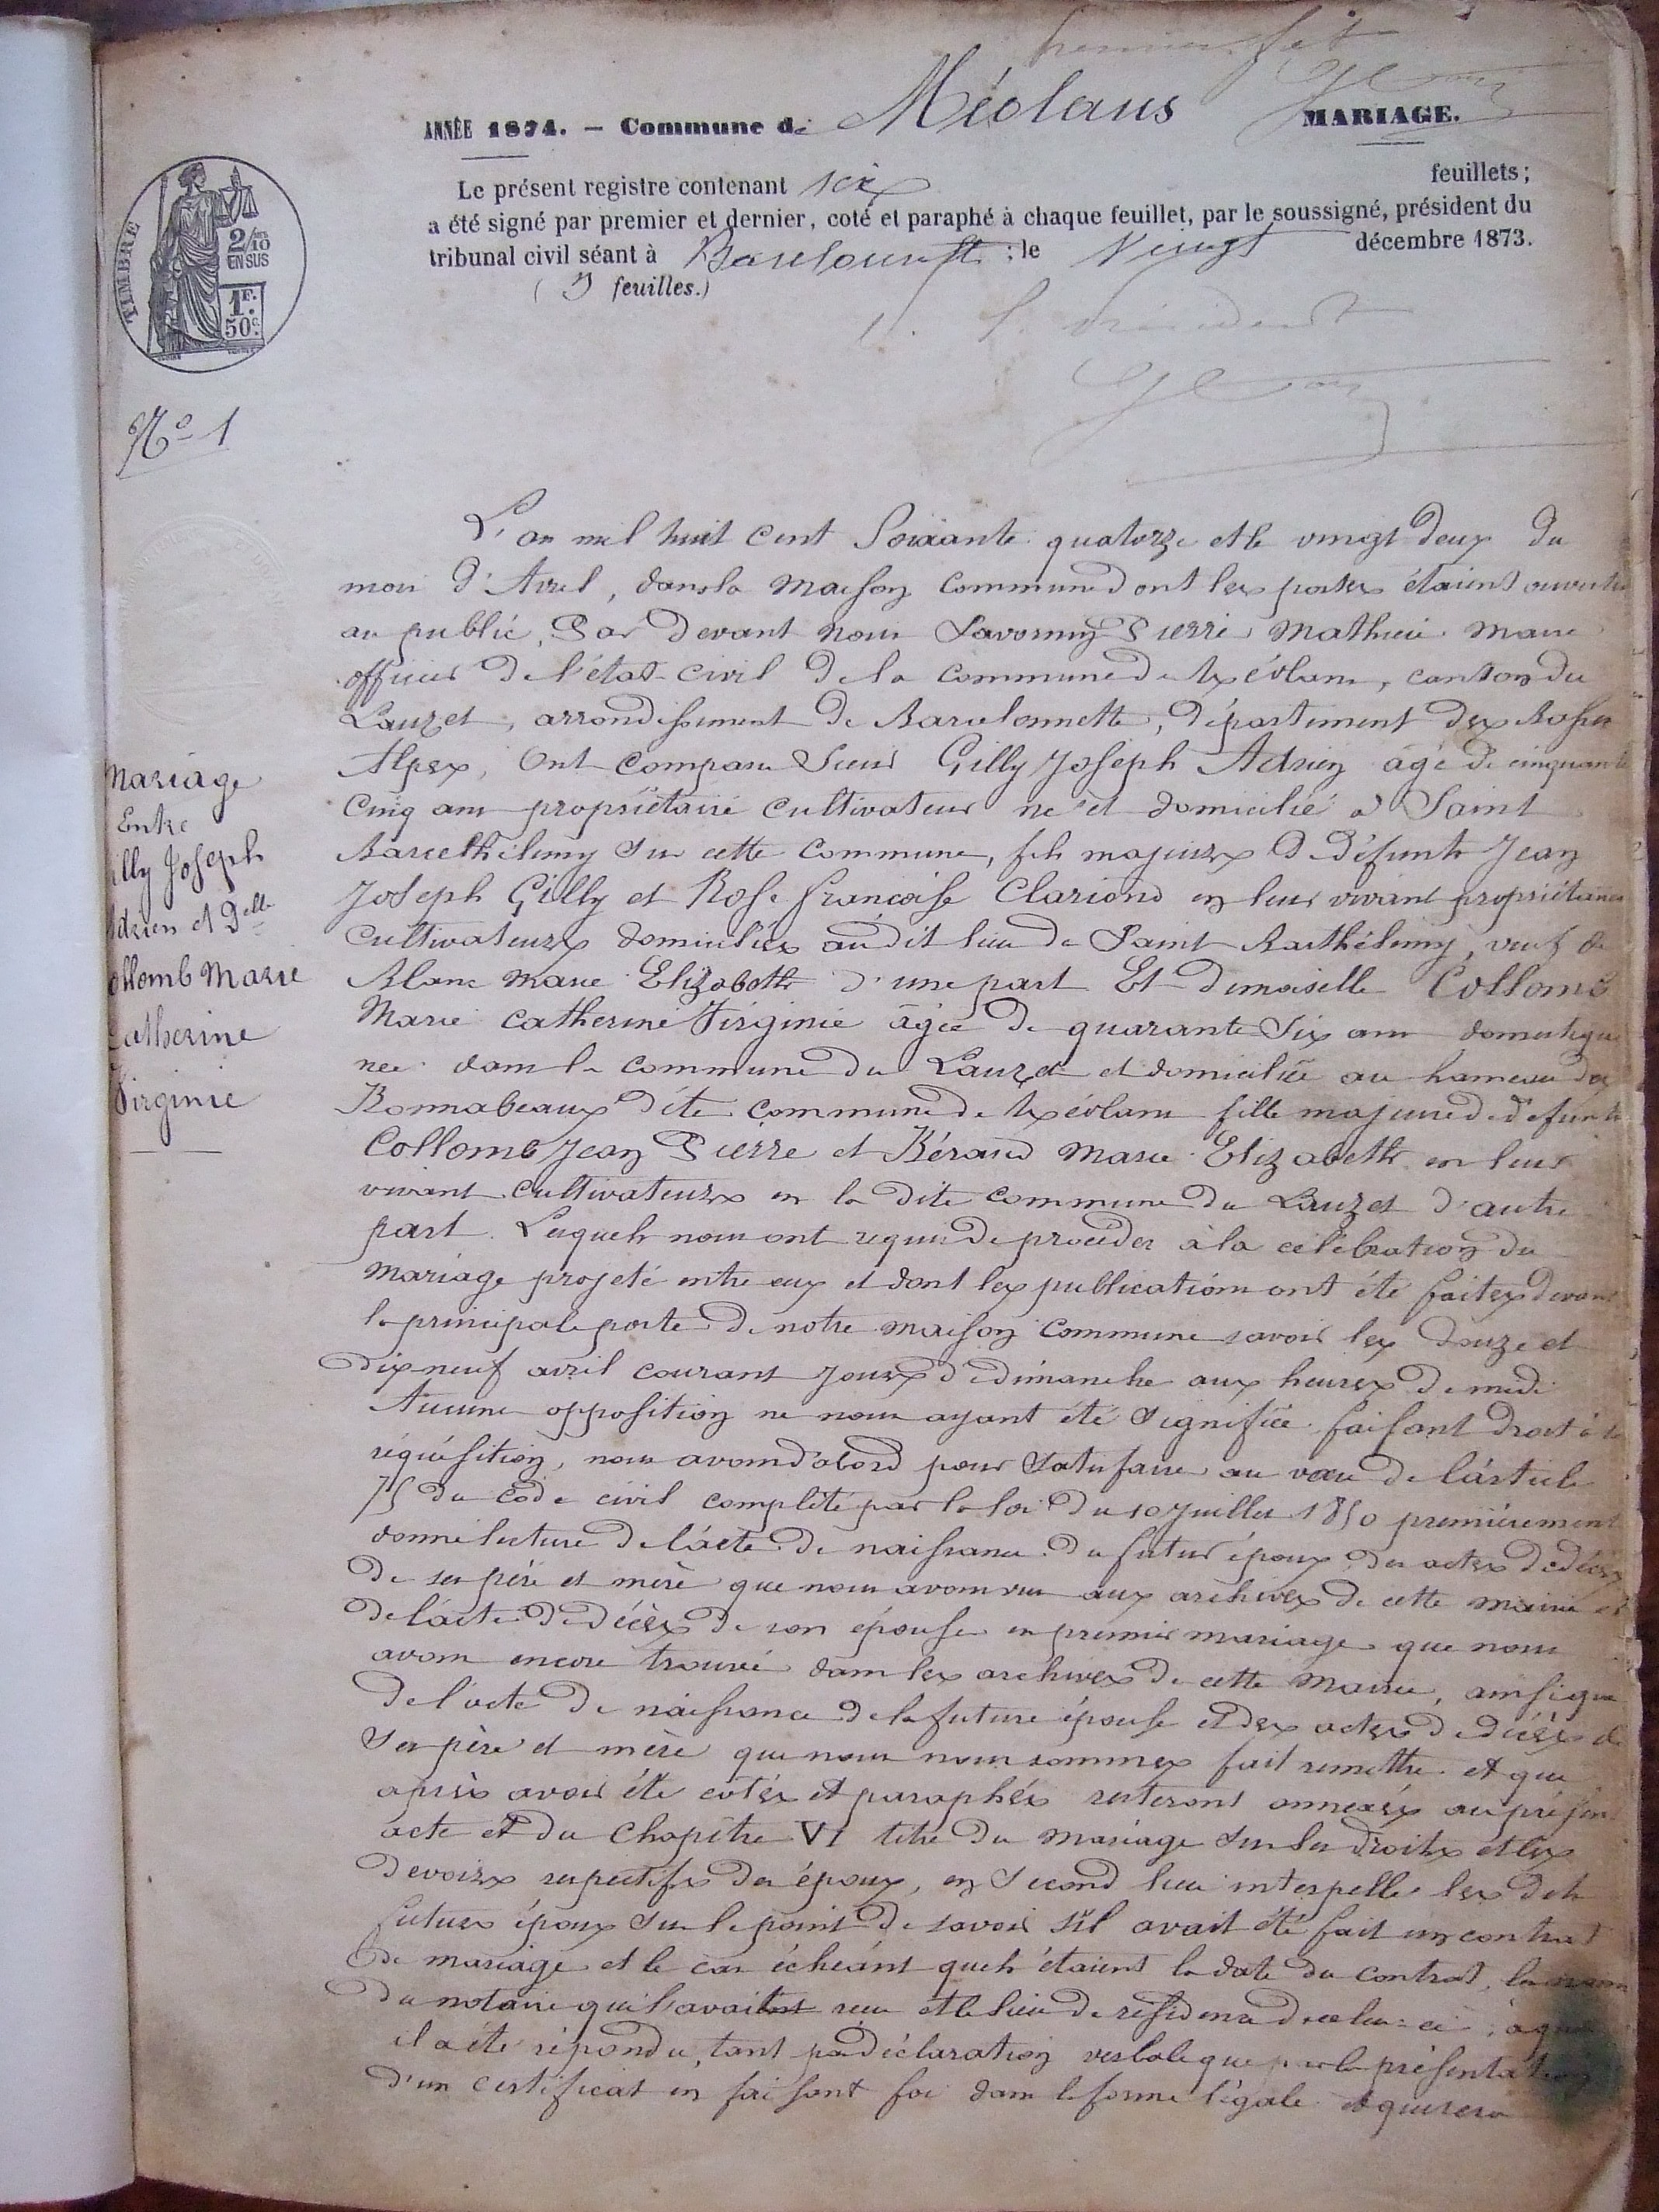 premier f et
ANNÉE 1874. — Commune de Méolans MARIAGE.
Le présent registre contenant six feuillets;
a été signé par premier et dernier, coté et paraphé à chaque feuillet, par le soussigné, président du
tribunal civil séant à Barcelonnette ; le Vingt décembre 1873.
(3 feuilles.)
TIMBRE
2/10
EN SUS
1F.
50c.
le président
No 1
L'an mil huit cent Soixante quatorze et le vingt deux du
mois d'Avril, dans la maison commune dont les portes étaient ouvertes
au public, Par devant nous Savornin Pierre Mathieu Maire
officier de l'état-civil de la commune de Méolans, canton du
Lauzet, arrondissement de Barcelonnette, département des Basses
Alpes, Ont comparu Sieur Gilly Joseph Adrien âgé de cinquante
cinq ans propriétaire cultivateur né et domicilié à Saint
Barthélemy sur cette commune, fils majeur de défunts Jean
Joseph Gilly et Rose françoise Clariond en leur vivant propriétaires
cultivateurs domiciliés audit lieu de Saint Barthélemy, veuf de
Blanc Marie Elizabeth d'une part Et demoiselle Collomb
Marie Catherine Virginie âgée de quarante six ans domestique
née dans la commune du Lauzet et domiciliée au hameau des
Bonnabeaux dite commune de Méolans fille majeure de défunts
Collomb Jean Pierre et Bérard Marie Elizabeth en leur
vivant cultivateurs en la dite commune du Lauzet d'autre
part. Lesquels nous ont requis de procéder à la célébration du
mariage projeté entre eux et dont les publications ont été faites devant
la principale porte de notre maison commune savoir les douze et
dix neuf avril courant jours de dimanche aux heures de midi
Aucune opposition ne nous ayant été signifiée faisant droit à la
réquisition, nous avons d'abord pour satisfaire au vœu de l'article
75 du code civil complété par la loi du 10 juillet 1850 premièrement
donné lecture de l'acte de naissance du futur époux des actes de décès
de ses père et mère que nous avons vu aux archives de cette mairie et
de l'acte de décès de son épouse en premier mariage que nous
avons encore trouvé dans les archives de cette mairie, ainsi que
de l'acte de naissance de la future épouse et des actes de décès de
ses père et mère que nous nous sommes fait remettre et que
après avoir été cotés et paraphés resteront annexés au présent
acte et du Chapitre VI titre du mariage sur les droits et les
devoirs respectifs des époux, en second lieu interpellé les dits
futurs époux sur le point de savoir s'il avait été fait un contrat
de mariage et le cas échéant quels étaient la date du contrat, les noms
du notaire qui l'avait reçu et le lieu de résidence de celui-ci ; à quoi
il a été répondu, tant par déclaration verbale que par la présentation
d'un certificat en faisant foi dans la forme légale et qui sera
Mariage
Entre
Gilly Joseph
Adrien et Delle
Collomb Marie
Catherine
Virginie